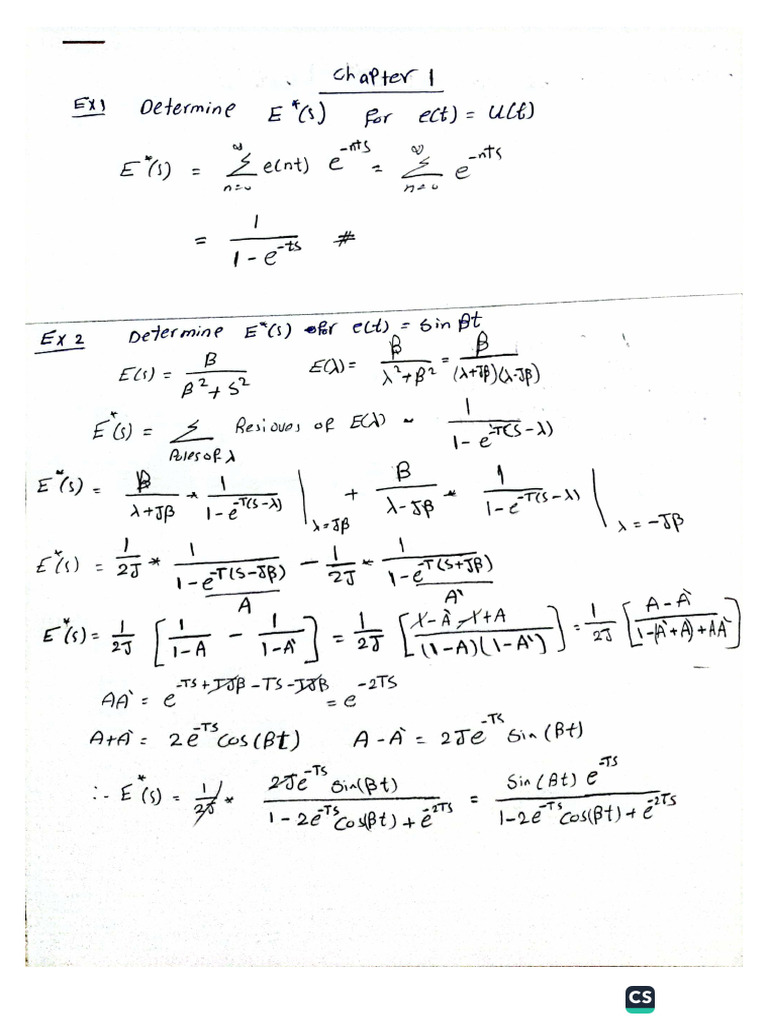 Chapter 1
Ex1 Determine E*(s) for e(t) = u(t)
E*(s) = ∑_{n=0}^{∞} e(nt) e^{-nts} = ∑_{n=0}^{∞} e^{-nts}
= 1/(1-e^{-ts}) #
Ex 2 Determine E*(s) for e(t) = Sin βt
E(s) = β/(β²+S²) E(λ) = β/(λ²+β²) = β/((λ+Jβ)(λ-Jβ))
E*(s) = ∑_{Poles of λ} Residues of E(λ) ~ 1/(1-e^{-T(S-λ)})
E*(s) = β/(λ+Jβ) * 1/(1-e^{-T(S-λ)}) |_{λ=Jβ} + β/(λ-Jβ) * 1/(1-e^{-T(S-λ)}) |_{λ=-Jβ}
E*(s) = 1/2J * 1/(1-e^{-T(S-Jβ)}) - 1/2J * 1/(1-e^{-T(S+Jβ)})
A A`
E*(s) = 1/2J [1/(1-A) - 1/(1-A`)] = 1/2J [(X-A`-X+A)/((1-A)(1-A`))] = 1/2J [(A-A`)/(1-(A`+A)+AA`)]
AA` = e^{-TS+TJβ-TS-TJβ} = e^{-2TS}
A+A` = 2e^{-TS} Cos(βt) A-A` = 2Je^{-TS} Sin(βt)
∴ E*(s) = 1/2J * 2Je^{-TS} Sin(βt)/(1-2e^{-TS} Cos(βt)+e^{-2TS}) = Sin(βt) e^{-TS}/(1-2e^{-TS} Cos(βt)+e^{-2TS})
CS